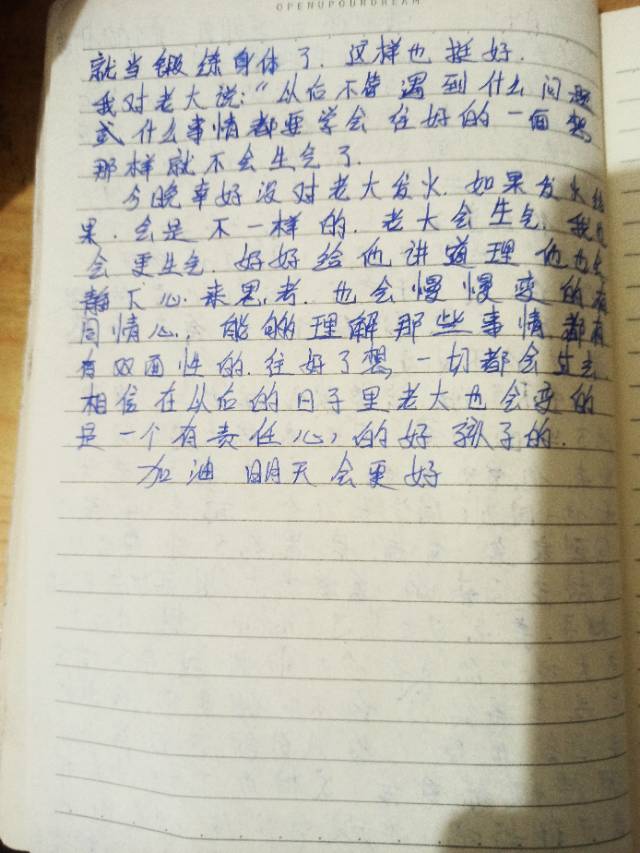 OPENUPOURDREAM
就当锻练身体了.这样也挺好.
我对老大说:“从后不管遇到什么问题
或什么事情都要学会往好的一面想,
那样就不会生气了.
今晚幸好没对老大发火.如果发火结
果.会是不一样的.老大会生气.我也
会更生气.好好给他讲道理他也会
静下心来思考.也会慢慢变的有
同情心,能够理解那些事情都有
有双面性的.往好了想,一切都会过去.
相信在从后的日子里老大也会变的
是一个有责任心的好孩子的.
加油明天会更好